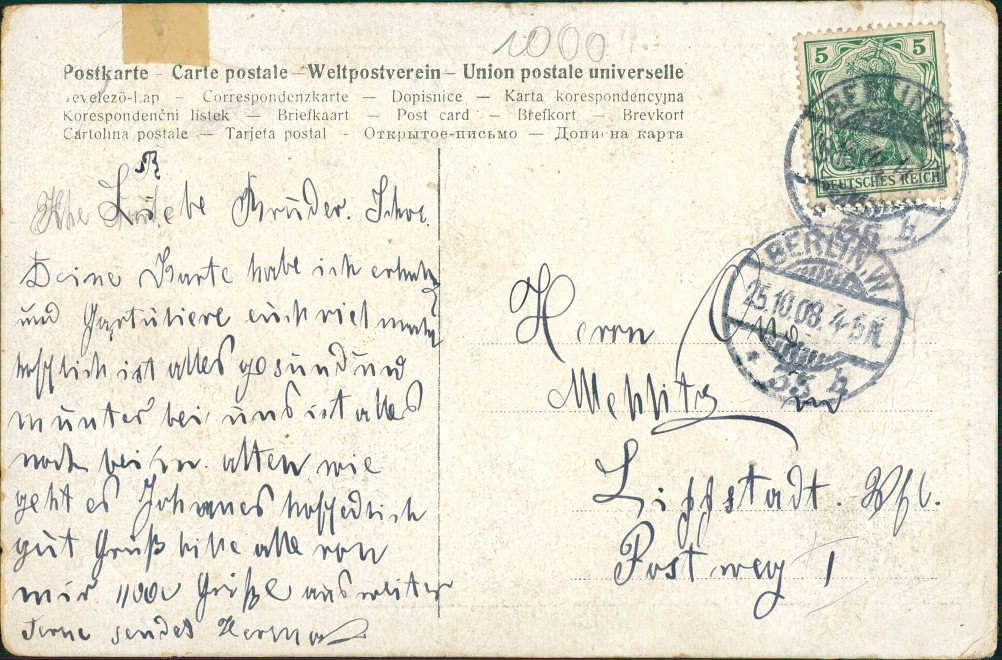 1000
Postkarte – Carte postale – Weltpostverein – Union postale universelle
Levelezö-Lap — Correspondenzkarte — Dopisnice — Karta korespondencyjna
Korespondenční lístek — Briefkaart — Post card — Brefkort — Brevkort
Cartolina postale — Tarjeta postal — Открытое-письмо — Допис на карта
5 5
DEUTSCHES REICH
BERLIN, W
35 h
BERLIN, W
25.10.08. 4-5 N.
35 h
Liebe Bruder. Schw.
Deine Karte habe ich erhalt
und Gartuliere euch viel mals
hoffflich ist alles gesund und
munter bei uns ist alles
noch beim alten wie
geht es Johanes hoffedlich
gut Gruß bitte alle von
mir 1000 Grüße aus weiter
Ferne sendet Herman
Herrn
Mehlitz in
Lippstadt. Wfl.
Postweg 1